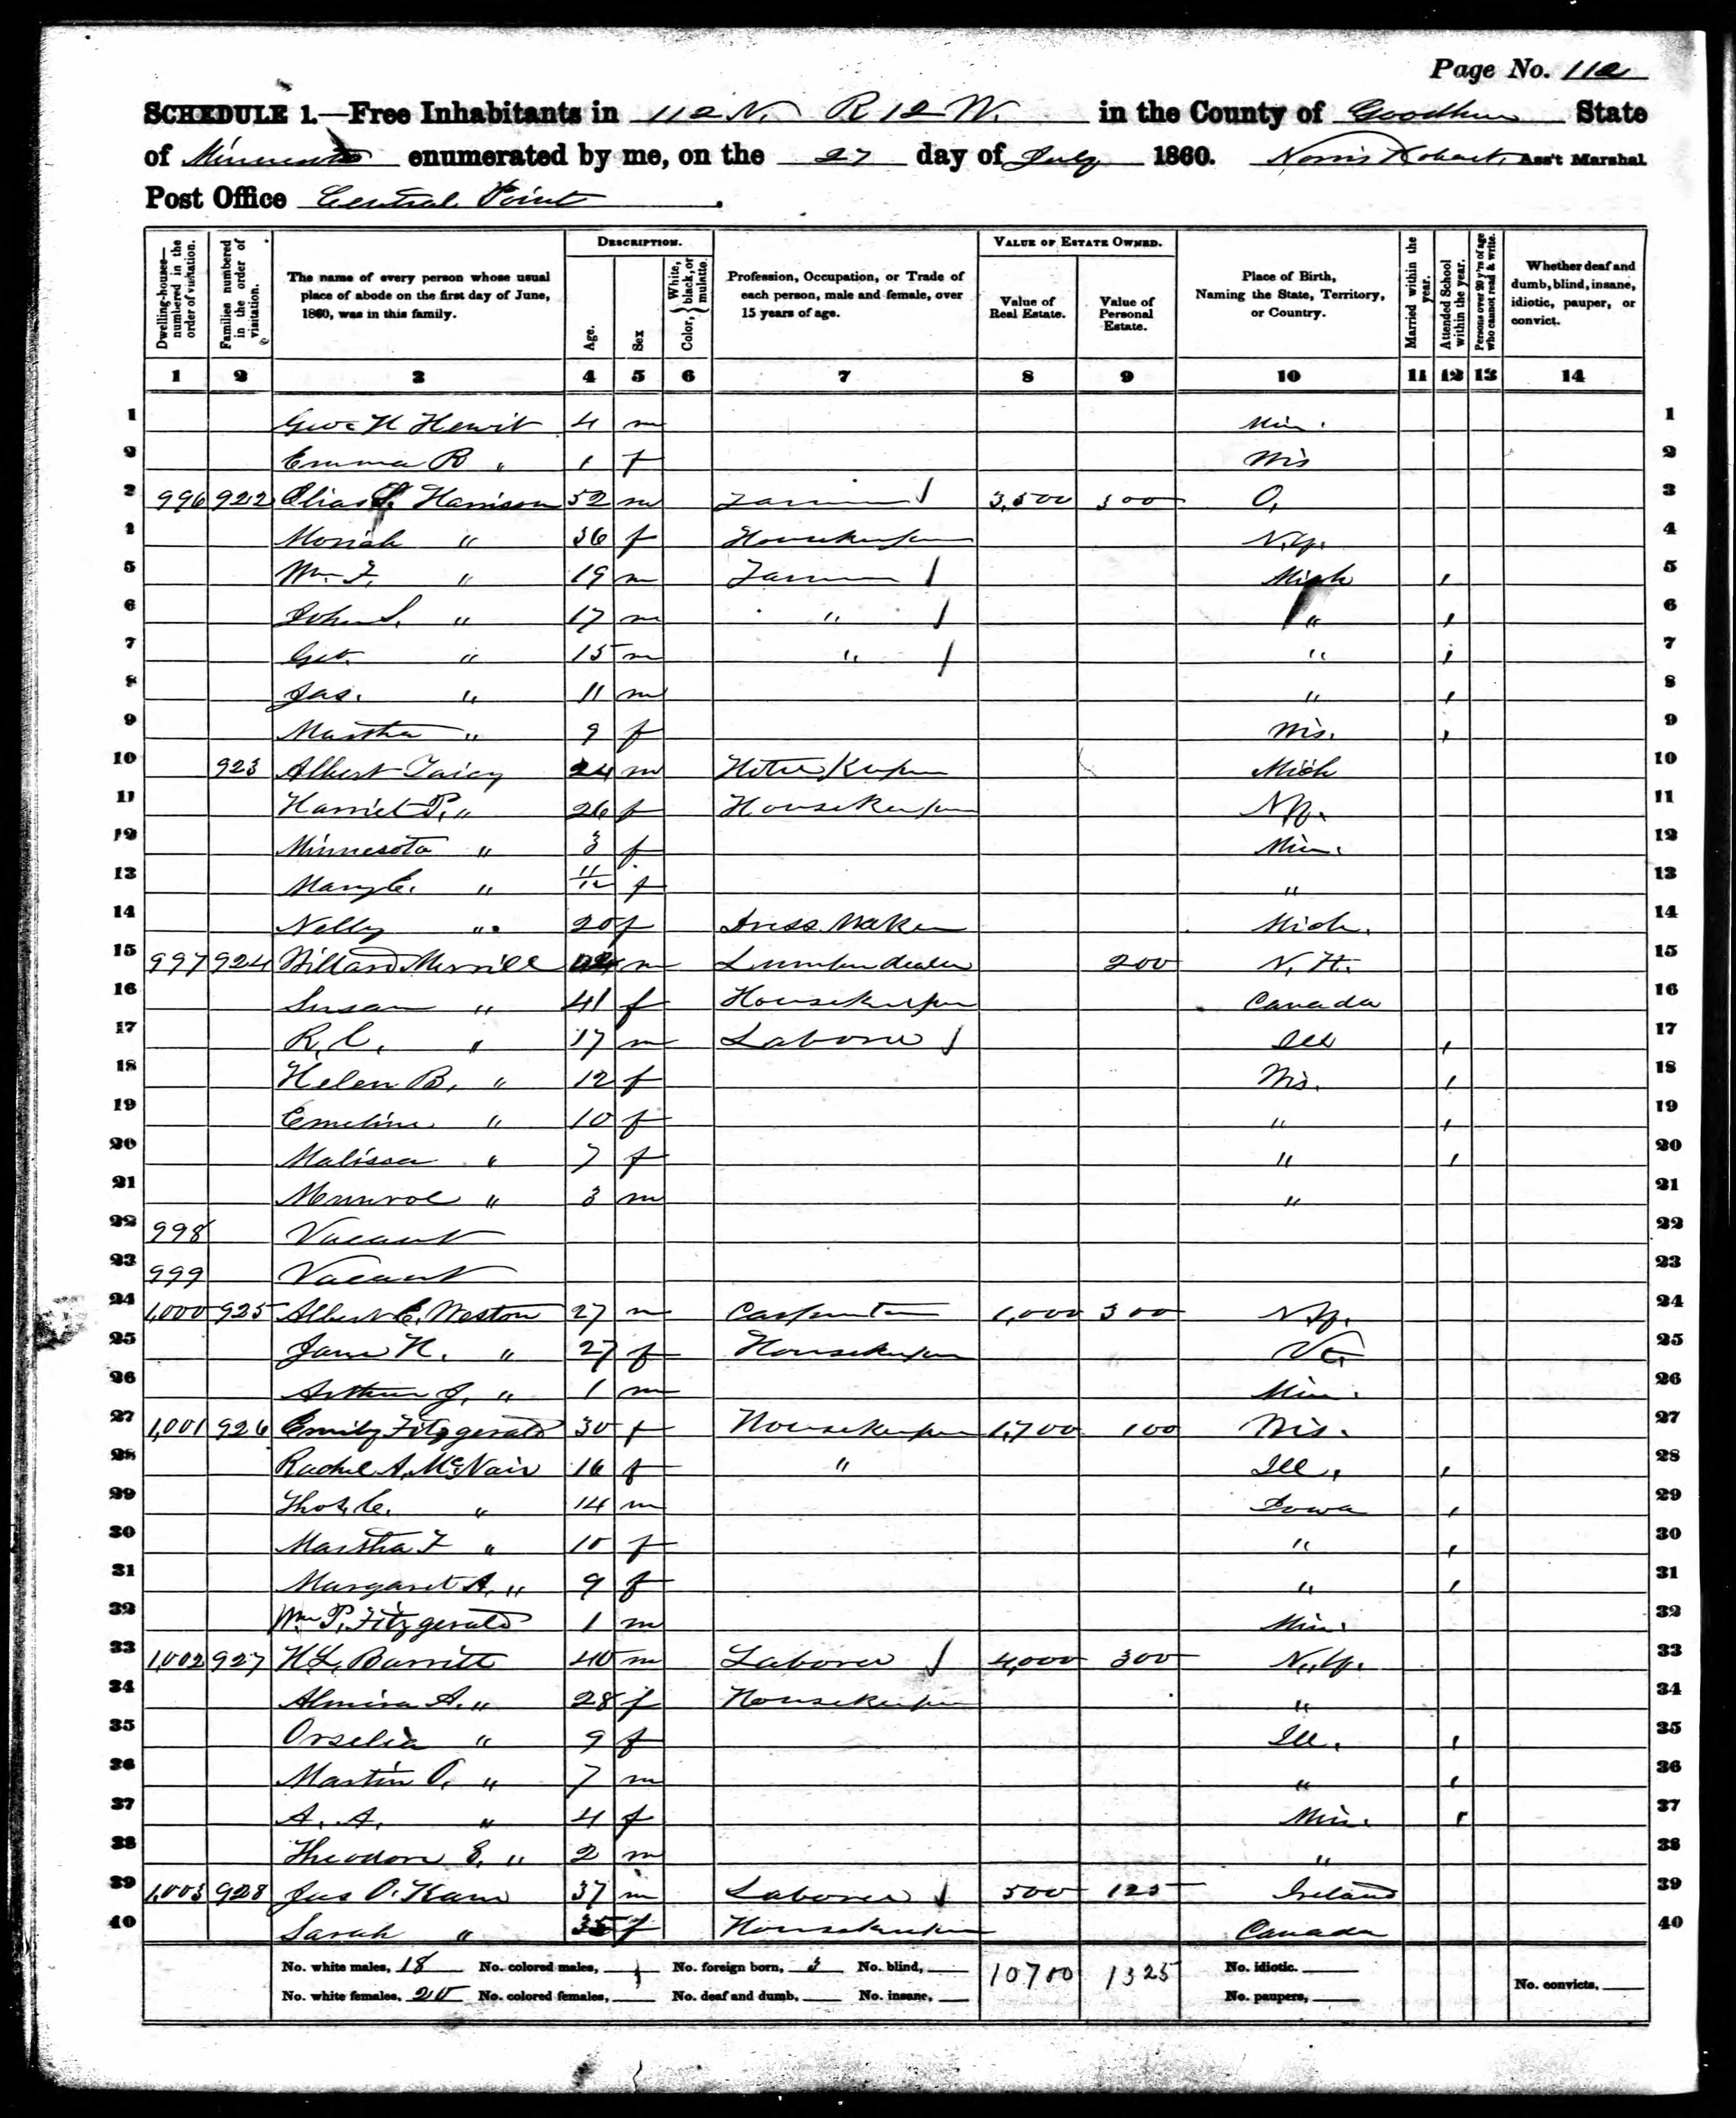 Page No. 112
SCHEDULE 1.—Free Inhabitants in 112 N. R 12 W. in the County of Goodhue State
of Minnesota enumerated by me, on the 27 day of July 1860. Norris Hobart, Ass't Marshal
Post Office Central Point.
Dwelling-houses—numbered in the order of visitation. Families numbered in the order of visitation. The name of every person whose usual place of abode on the first day of June, 1860, was in this family. DESCRIPTION. Age. Sex Color, {White, black, or mulatto. Profession, Occupation, or Trade of each person, male and female, over 15 years of age. VALUE OF ESTATE OWNED. Value of Real Estate. Value of Personal Estate. Place of Birth, Naming the State, Territory, or Country. Married within the year. Attended School within the year. Persons over 20 y'rs of age who cannot read & write. Whether deaf and dumb, blind, insane, idiotic, pauper, or convict.
1 2 3 4 5 6 7 8 9 10 11 12 13 14
1 Geo. H Hewit 4 m Min. 1
2 Emma R " 1 f Wis 2
3 996 922 Elias S. Harrison 52 m Farmer / 3,500 300 O, 3
4 Moriah " 36 f Housekeeper N.Y. 4
5 Wm. F. " 19 m Farmer / Mich , 5
6 John S. " 17 m " / " , 6
7 Geo. " 15 m " / " , 7
8 Jas. " 11 m " , 8
9 Martha " 9 f Wis. , 9
10 923 Albert 24 m Hotel Keeper Mich 10
11 Harriet P. " 26 f Housekeeper N.Y. 11
12 Minnesota " 3 f Min. 12
13 Mary E. " 11/12 f " 13
14 Nelly " 20 f Dress Maker Mich. 14
15 997 924 Willard Merrill m Lumber dealer 200 N. H. 15
16 Susan " 41 f Housekeeper Canada 16
17 R. C. " 17 m Laborer / Ill , 17
18 Helen B. " 12 f Wis. , 18
19 Emeline " 10 f " , 19
20 Malissa " 7 f " , 20
21 Munroe " 3 m " 21
22 998 Vacant 22
23 999 Vacant 23
24 1,000 925 Albert E. Weston 27 m Carpenter 1,000 300 N.Y. 24
25 Jane H. " 27 f Housekeeper Vt. 25
26 Arthur J. " 1 m Min. 26
27 1,001 926 Emily Fitzgerald 30 f Housekeeper 1,700 100 Wis. 27
28 Rachel A. McNair 16 f " Ill. , 28
29 Thos. C. " 14 m Iowa , 29
30 Martha F " 10 f " , 30
31 Margaret A. " 9 f " , 31
32 Wm P. Fitzgerald 1 m Min. 32
33 1,002 927 H L. Barritt 40 m Laborer / 4,000 300 N.Y. 33
34 Almira A. " 28 f Housekeeper " 34
35 Orselia " 9 f Ill. , 35
36 Martin O. " 7 m " , 36
37 A. A. " 4 f Min. , 37
38 Theodore E. " 2 m " 38
39 1,003 928 Jas O. Kane 37 m Laborer / 500 125 Ireland 39
40 Sarah " 35 f Housekeeper Canada 40
No. white males, 18 No. colored males, No. foreign born, 3 No. blind, 10700 1325 No. idiotic.
No. white females, 20 No. colored females, No. deaf and dumb, No. insane, No. paupers, No. convicts,